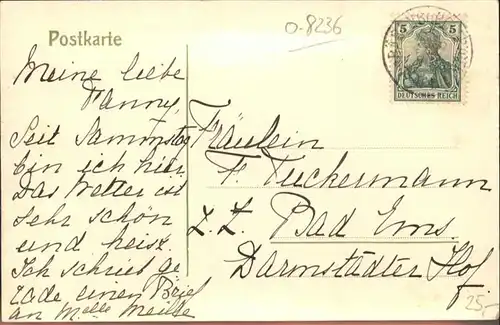 o-8236
Postkarte
5 5
DEUTSCHES REICH
Meine liebe
Fanny,
Seit Sammstag
bin ich hier.
Das Wetter ist
sehr schön
und heiss.
Ich schrieb ge
rade einen Brief
an Melle
Fräulein
F. Tuckermann
z. Z. Bad Ems.
Darmstädter Hof.
25,-